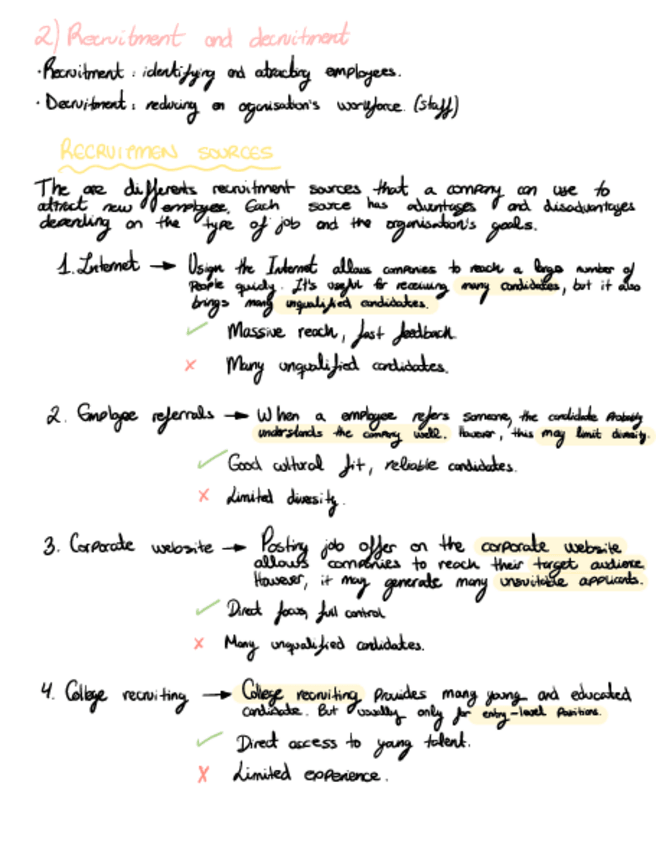 2) Recruitment and decruitment
· Recruitment : identifying and atracting employees.
· Decruitment : reducing an oganisation's workforce. (staff)
RECRUITMEN SOURCES
The are differents recruitment sources that a company can use to
attract new employee. Each source has advantages and disadvantages
depending on the type of job and the organisation's goals.
1. Internet → Usign the Internet allows companies to reach a large number of
People quicly. It's useful for receiving many candidates, but it also
brings many unqualified candidates.
✓ Massive reach, fast feedback
x Many unqualified candidates.
2. Employee referrals → When a employee refers someone, the candidate Probably
understands the company well. However, this may limit diversity.
✓ Good cultural fit, reliable candidates.
x Limited diversity.
3. Corporate website → Posting job offer on the corporate website
allows companies to reach their target audience
However, it may generate many unsuitable applicants.
✓ Direct focus, full control
x Many unqualified candidates.
4. College recruiting → College recruiting Provides many young and educated
candidate. But usually only for entry-level Positions.
✓ Direct access to young talent.
x Limited experience.